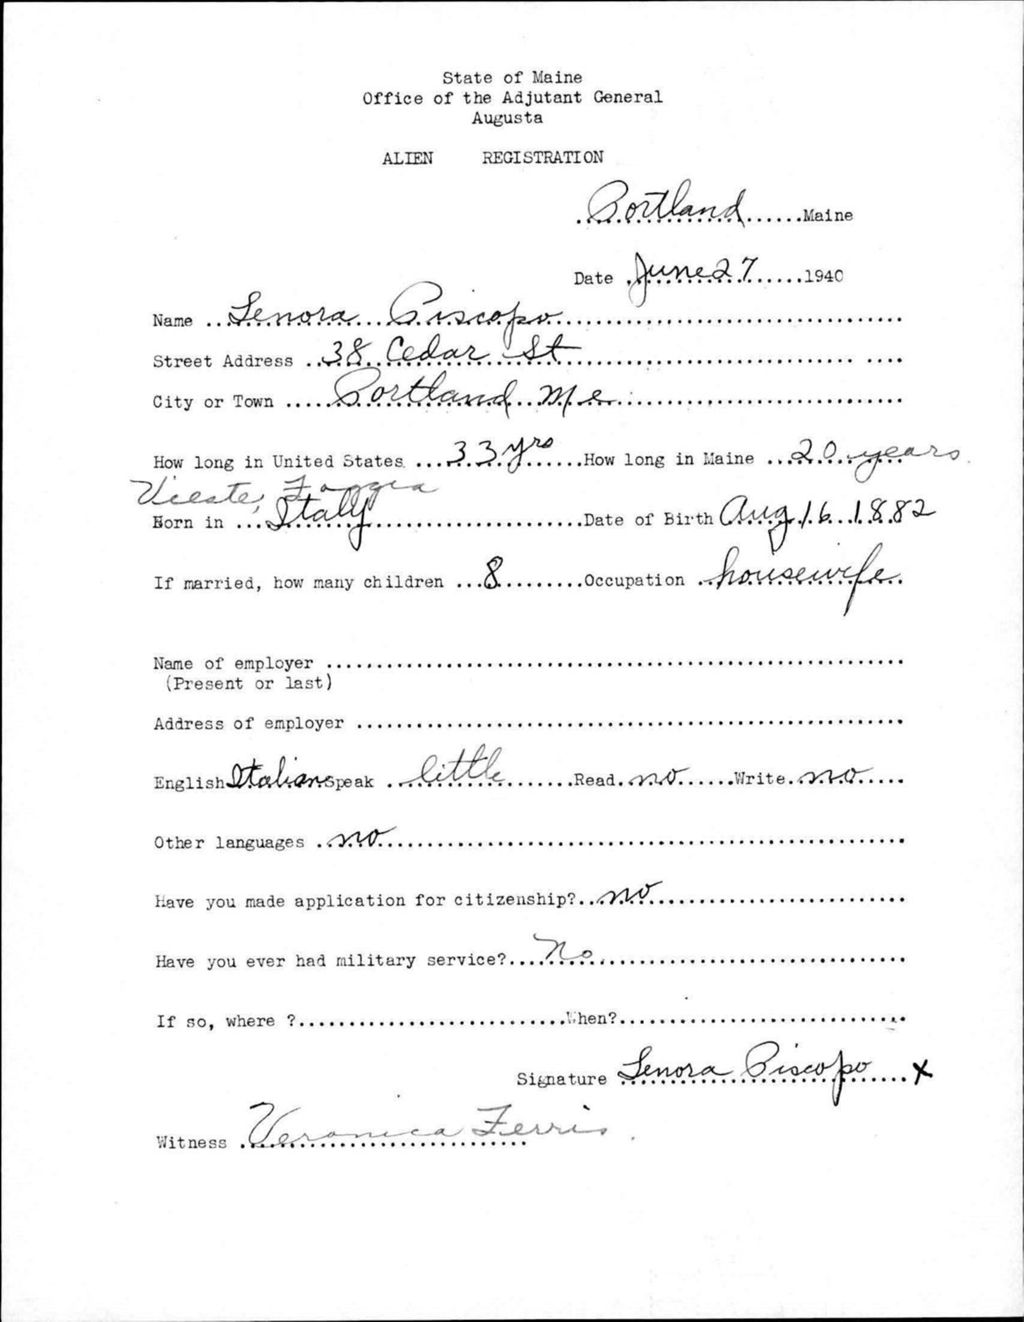 State of Maine
Office of the Adjutant General
Augusta
ALIEN REGISTRATION
Portland Maine
Date June 27 1940
Name Lenora Piscopo
Street Address 38 Cedar St
City or Town Portland Me
How long in United States 33 yrs How long in Maine 20 years
Vieste, Foggia
Born in Italy Date of Birth Aug 16 1882
If married, how many children 8 Occupation housewife
Name of employer
(Present or last)
Address of employer
English Italian Speak little Read no Write no
Other languages no
Have you made application for citizenship? no
Have you ever had military service? No
If so, where ? When?
Signature Lenora Piscopo X
Witness Veronica Ferris